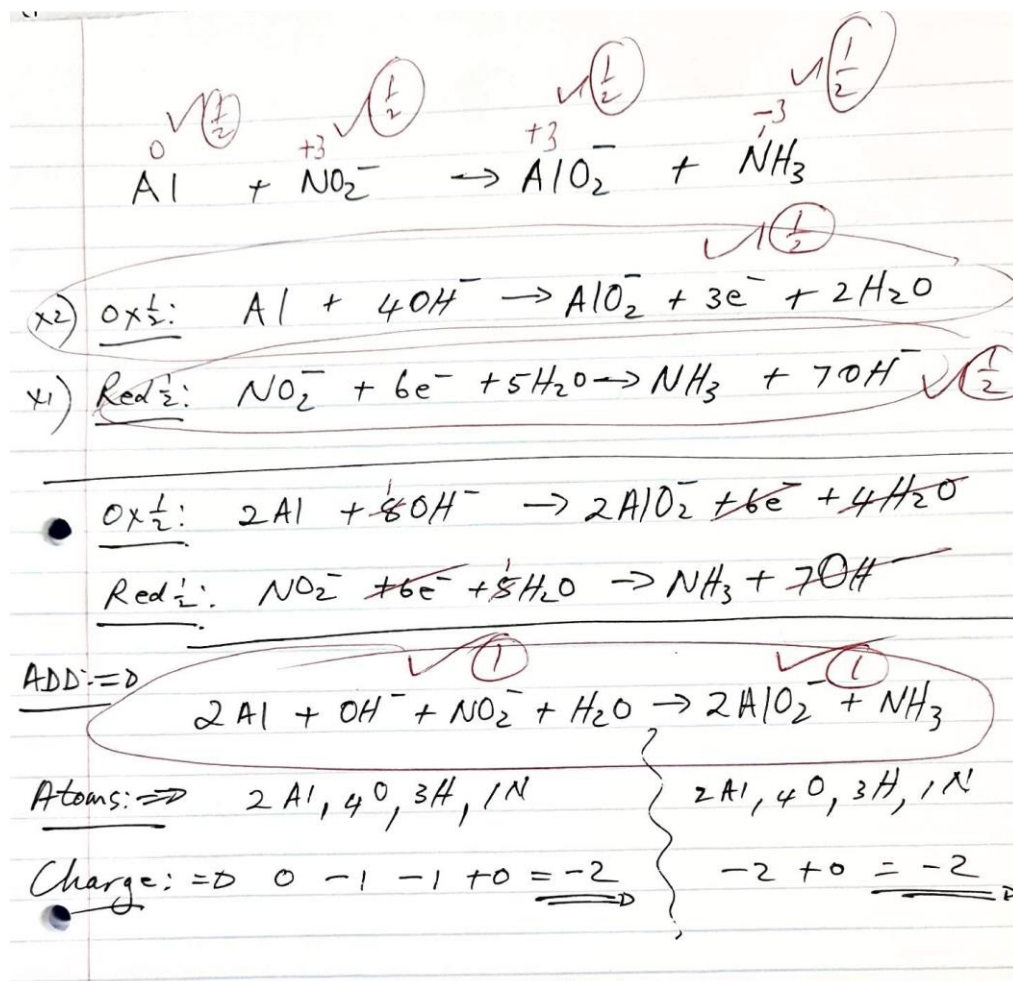 ✓(½) ✓(½) ✓(½) ✓(½)
0 +3 +3 -3
Al + NO₂⁻ → AlO₂⁻ + NH₃
✓(½)
x2) Ox½: Al + 4OH⁻ → AlO₂⁻ + 3e⁻ + 2H₂O
x1) Red½: NO₂⁻ + 6e⁻ + 5H₂O → NH₃ + 7OH⁻ ✓(½)
1
Ox½: 2Al + 8OH⁻ → 2AlO₂⁻ + 6e⁻ + 4H₂O
1
Red½: NO₂⁻ + 6e⁻ + 5H₂O → NH₃ + 7OH⁻
✓(1) ✓(1)
ADD:⇒
2Al + OH⁻ + NO₂⁻ + H₂O → 2AlO₂⁻ + NH₃
Atoms:⇒ 2Al, 4O, 3H, 1N 2Al, 4O, 3H, 1N
Charge:⇒ 0 -1 -1 +0 = -2 -2 +0 = -2